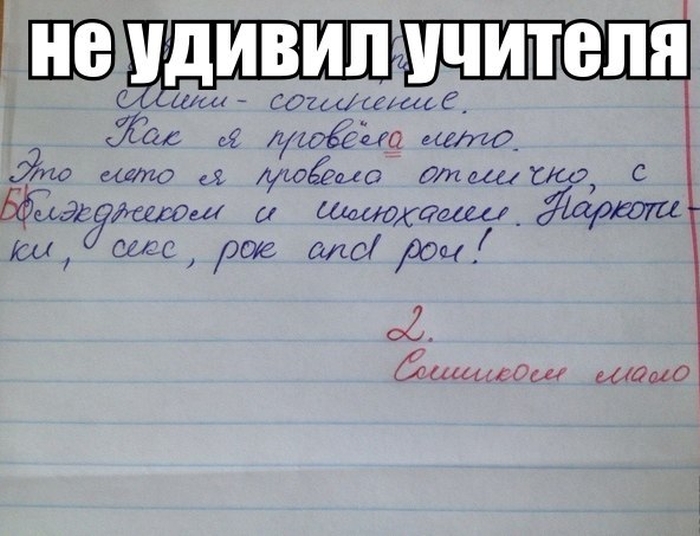 не удивил учителя
Мини-сочинение.
Как я провёла лето.
Это лето я провела отлично, с
Бблэкджеком и шлюхами. Наркоти-
ки, секс, рок and рол!
2.
Слишком мало